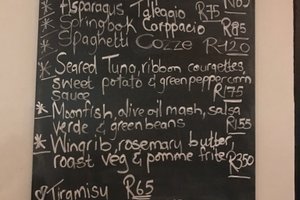 * Asparagus Taleggio R75
* Springbok Carppacio R85
* Spaghetti Cozze R120
* Seared Tuna, ribbon courgettes,
sweet potato & green peppercorn
sauce R175
* Moonfish, olive oil mash, salsa
verde & green beans R155
* Wing rib, rosemary butter,
roast veg & pomme frites R350
Tiramisu R65